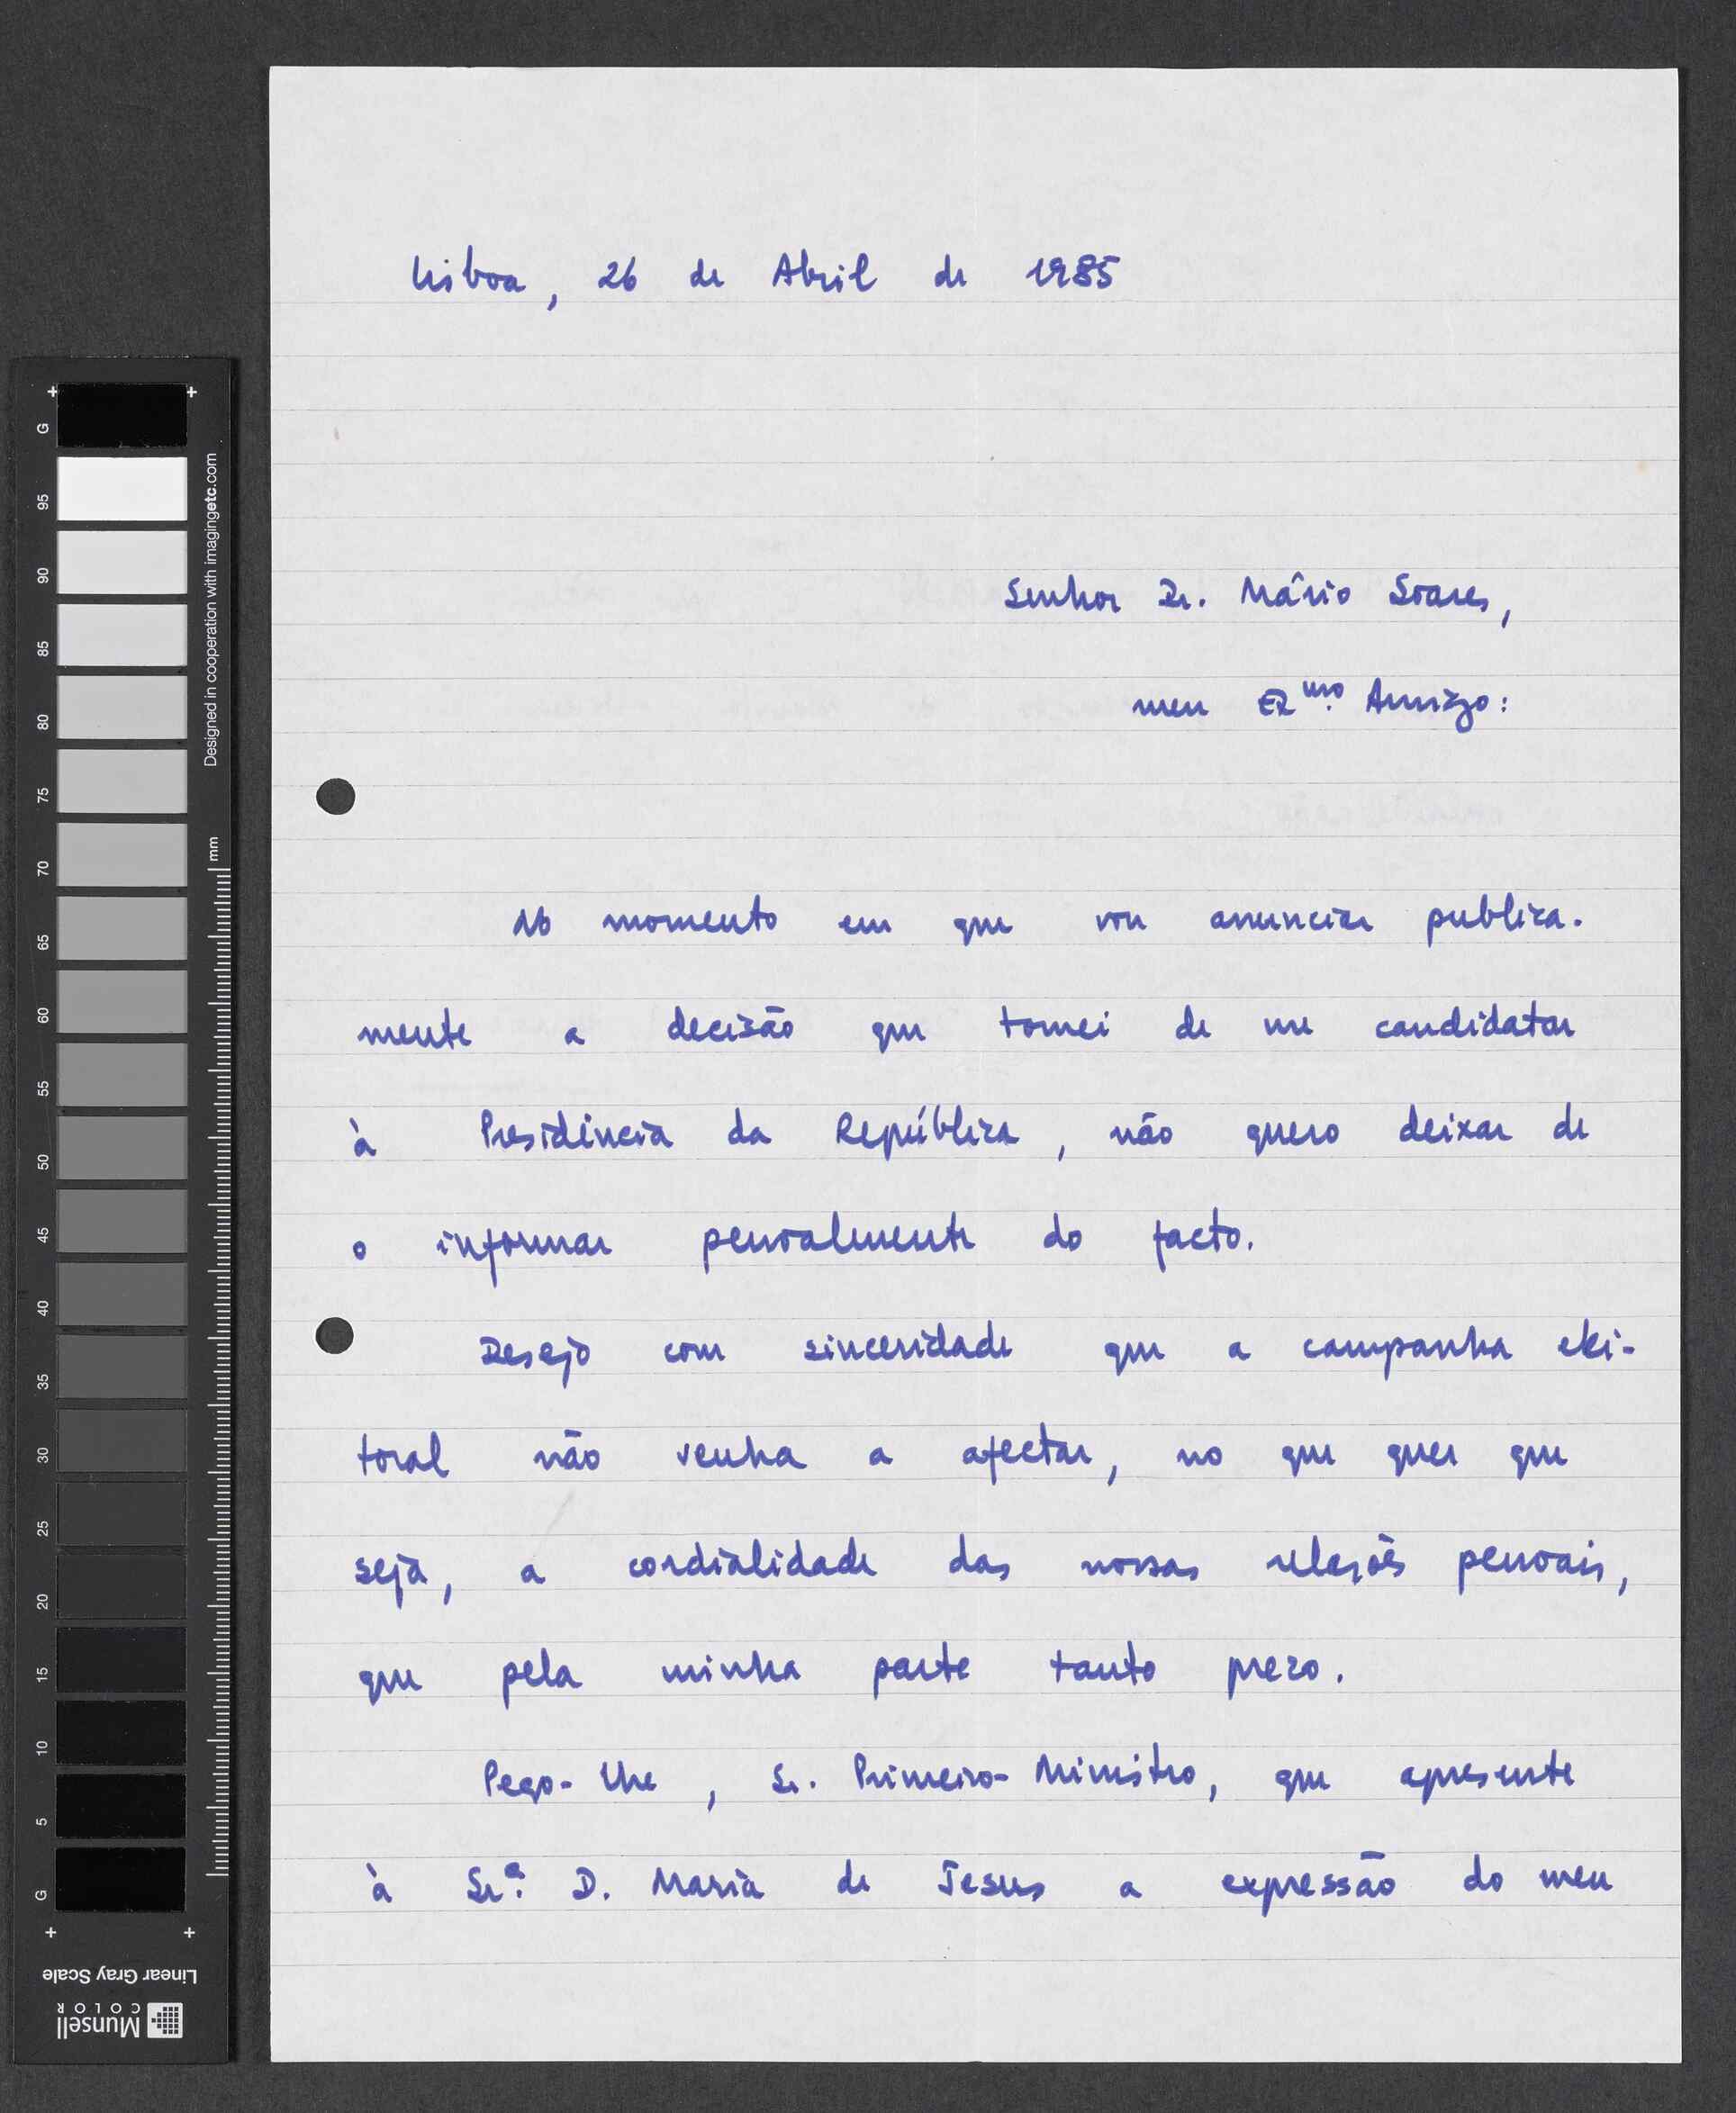 Lisboa, 26 de Abril de 1985
Senhor Dr. Mário Soares,
meu Ex.mo Amigo:
No momento em que vou anunciar publica-
mente a decisão que tomei de me candidatar
à Presidência da República, não quero deixar de
o informar pessoalmente do facto.
Desejo com sinceridade que a campanha elei-
toral não venha a afectar, no que quer que
seja, a cordialidade das nossas relações pessoais,
que pela minha parte tanto prezo.
Peço-lhe, Sr. Primeiro-Ministro, que apresente
à Sr.ª D. Maria de Jesus a expressão do meu
G
95
90
85
80
75
70
65
60
55
50
45
40
35
30
25
20
15
10
5
G
Designed in cooperation with imagingetc.com
mm
Linear Gray Scale
Munsell
COLOR